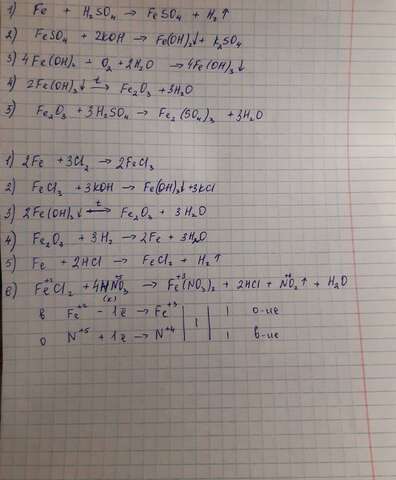 1) Fe + H₂SO₄ → FeSO₄ + H₂↑
2) FeSO₄ + 2KOH → Fe(OH)₂↓ + K₂SO₄
3) 4Fe(OH)₂ + O₂ + 2H₂O → 4Fe(OH)₃↓
4) 2Fe(OH)₃↓ —t→ Fe₂O₃ + 3H₂O
5) Fe₂O₃ + 3H₂SO₄ → Fe₂(SO₄)₃ + 3H₂O
1) 2Fe + 3Cl₂ → 2FeCl₃
2) FeCl₃ + 3KOH → Fe(OH)₃↓ + 3KCl
3) 2Fe(OH)₃↓ —t→ Fe₂O₃ + 3H₂O
4) Fe₂O₃ + 3H₂ → 2Fe + 3H₂O
5) Fe + 2HCl → FeCl₂ + H₂↑
6) Fe⁺²Cl₂ + 4HN⁺⁵O₃ → Fe⁺³(NO₃)₂ + 2HCl + N⁺⁴O₂↑ + H₂O
(к)
в Fe⁺² - 1ē → Fe⁺³ | | 1 о-ие
о N⁺⁵ + 1ē → N⁺⁴ | 1 | 1 в-ие